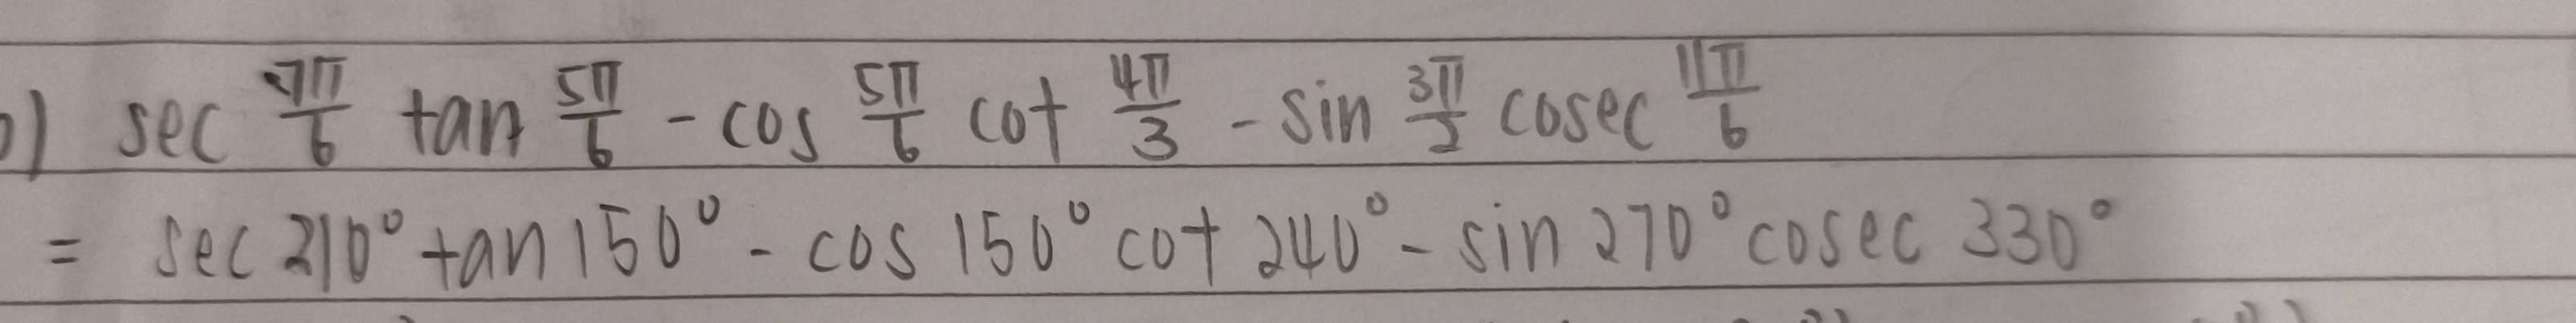 ) sec 7π/6 tan 5π/6 - cos 5π/6 cot 4π/3 - sin 3π/2 cosec 11π/6
= sec 210° tan 150° - cos 150° cot 240° - sin 270° cosec 330°